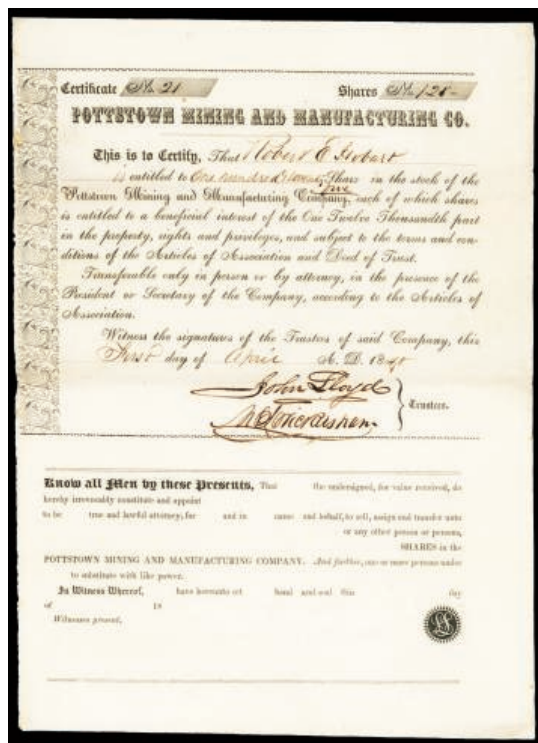 Certificate No. 21 Shares No. 125
POTTSTOWN MINING AND MANUFACTURING CO.
This is to Certify, That Robert E Hobart
is entitled to One hundred & twenty five Share in the stock of the
Pottstown Mining and Manufacturing Company, each of which shares
is entitled to a beneficial interest of the One Twelve Thousandth part
in the property, rights and privileges, and subject to the terms and con-
ditions of the Articles of Association and Deed of Trust.
Transferable only in person or by attorney, in the presence of the
President or Secretary of the Company, according to the Articles of
Association.
Witness the signatures of the Trustees of said Company, this
First day of April A. D. 18
John Lloyd
Trustees.
Know all Men by these Presents, That the undersigned, for value received, do
hereby irrevocably constitute and appoint
to be true and lawful attorney, for and in name and behalf, to sell, assign and transfer unto
or any other person or persons,
SHARES in the
POTTSTOWN MINING AND MANUFACTURING COMPANY. And further, one or more persons under
to substitute with like power.
In Witness Whereof, have hereunto set hand and seal this day
of 18
Witnesses present,
LS